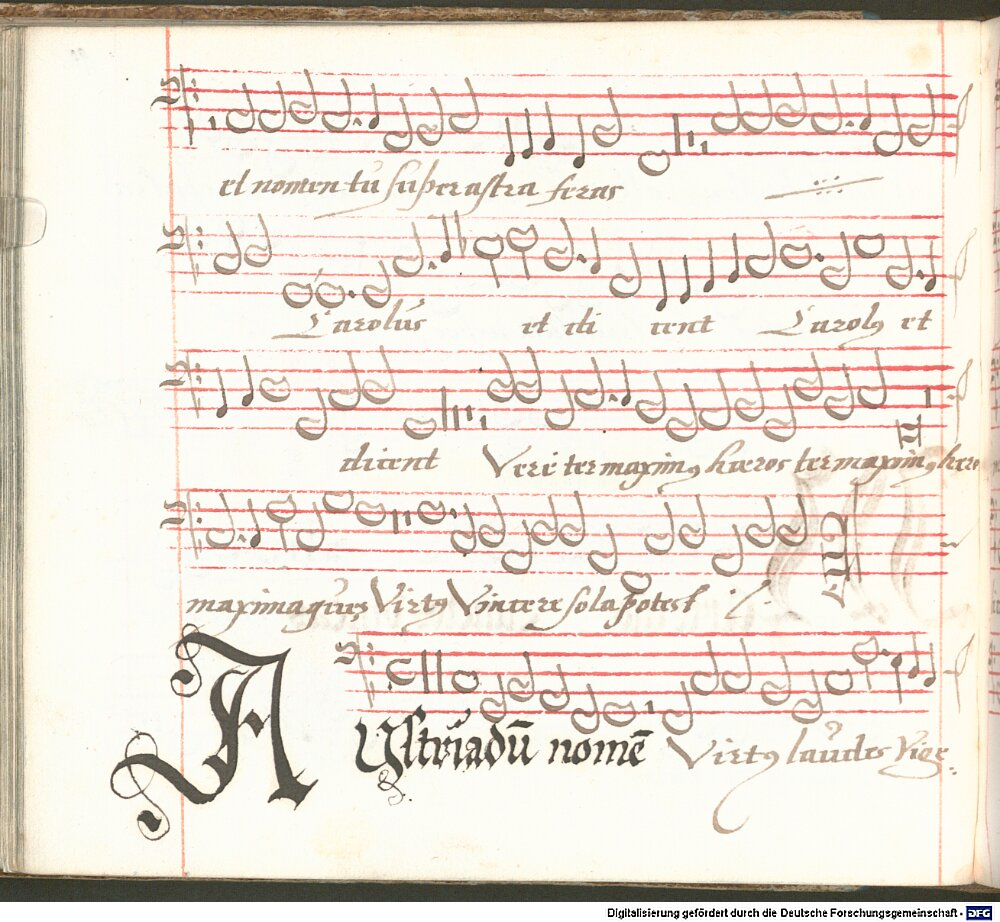 et nomen tu᷃ super astra feras
Carolus et di cent Carolꝰ et
dicent Vere ter maximꝰ hæros ter maximꝰ hæro
maxima qui9 Virtꝰ Vincere sola potest
AUstriadū nomē Virtꝰ laudes Vige
Digitalisierung gefördert durch die Deutsche Forschungsgemeinschaft - DFG